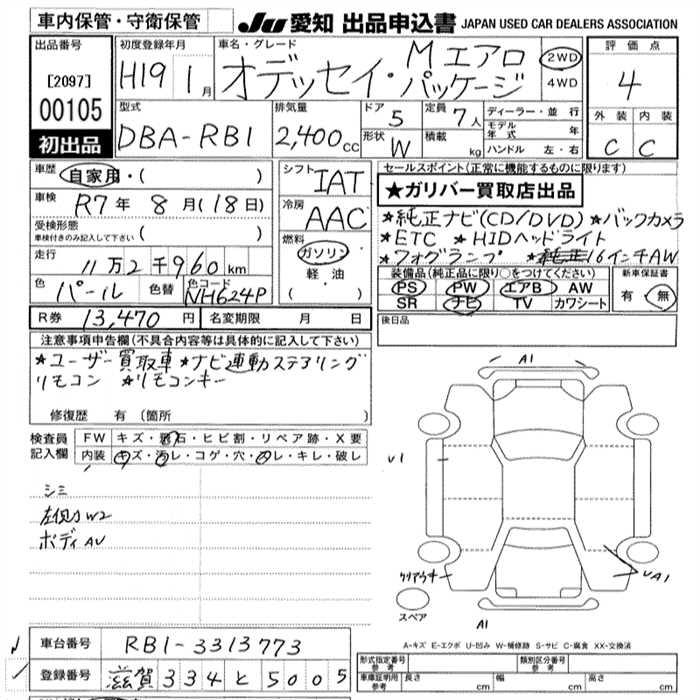 車内保管・守衛保管
JU 愛知 出品申込書 JAPAN USED CAR DEALERS ASSOCIATION
出品番号 [2097] 00105 初出品
初度登録年月 H19 1月
車名・グレード オデッセイ・Mエアロパッケージ
2WD 4WD
評価点 4
外装 内装
C C
型式 DBA-RB1
排気量 2,400cc
ドア 5 定員 7人
形状 W 積載 kg
ディーラー・並行
モデル年式 年
ハンドル 左・右
車歴 自家用・( )
車検 R7年 8月(18日)
受検形態 車検付きのみ記入して下さい ( )
走行 11万2千960km
色 パール 色替 色コード NH624P
シフト IAT
冷房 AAC
燃料 ガソリン 軽油 ( )
セールスポイント(正常に機能するものに限ります)
★ガリバー買取店出品
★純正ナビ(CD/DVD) ★バックカメラ
★ETC ★HIDヘッドライト
★フォグランプ ★純正16インチAW
装備品(純正品に限り○をつけてください) 新車保証書
PS PW エアB AW 有・無
SR ナビ TV カワシート
後日品
R券 13,470円 名変期限 月 日
注意事項申告欄(不具合内容等は具体的に記入して下さい)
★ユーザー買取車 ★ナビ連動ステアリング
リモコン ★リモコンキー
修復歴 有(箇所 )
検査員記入欄
FW キズ・飛石・ヒビ割・リペア跡・X要
内装 キズ・汚レ・コゲ・穴・スレ・キレ・破レ
シミ
左側カW2
ボディAU
A1
U1
クリアウキ
UA1
スペア
A1
A-キズ E-エクボ U-凹み W-補修跡 S-サビ C-腐食 XX-交換済
車台番号 RB1-3313773
登録番号 滋賀 334 と 5005
形式指定番号 参考 類別区分番号 参考
車庫証明用 参考 長さ cm 幅 cm 高さ cm